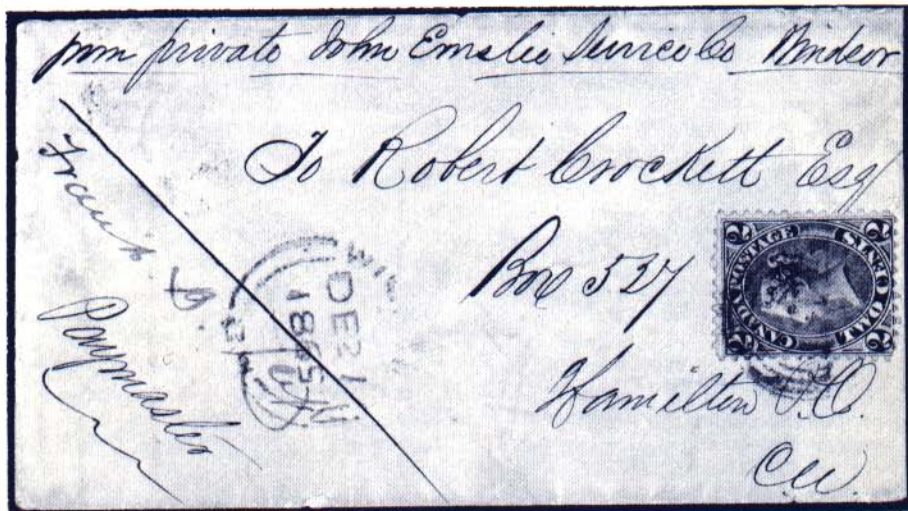 from private John Emslie Service Co Windsor
To Robert Crockett Esq
Box 527
Hamilton P.O.
CW.
Paymaster
WIN
DE 21
1865
CANADA POSTAGE
TWO CENTS
2 2 2 2